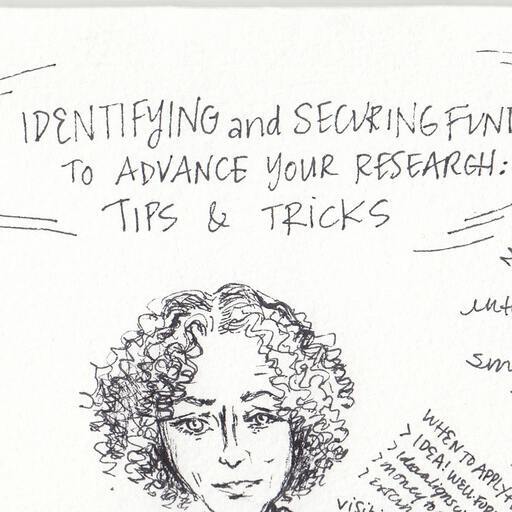 IDENTIFYING and SECURING FUN
TO ADVANCE YOUR RESEARCH:
TIPS & TRICKS
sm
WHEN TO APPLY
> IDEA! WELL-FOR
> idea aligns
> money to
visiti